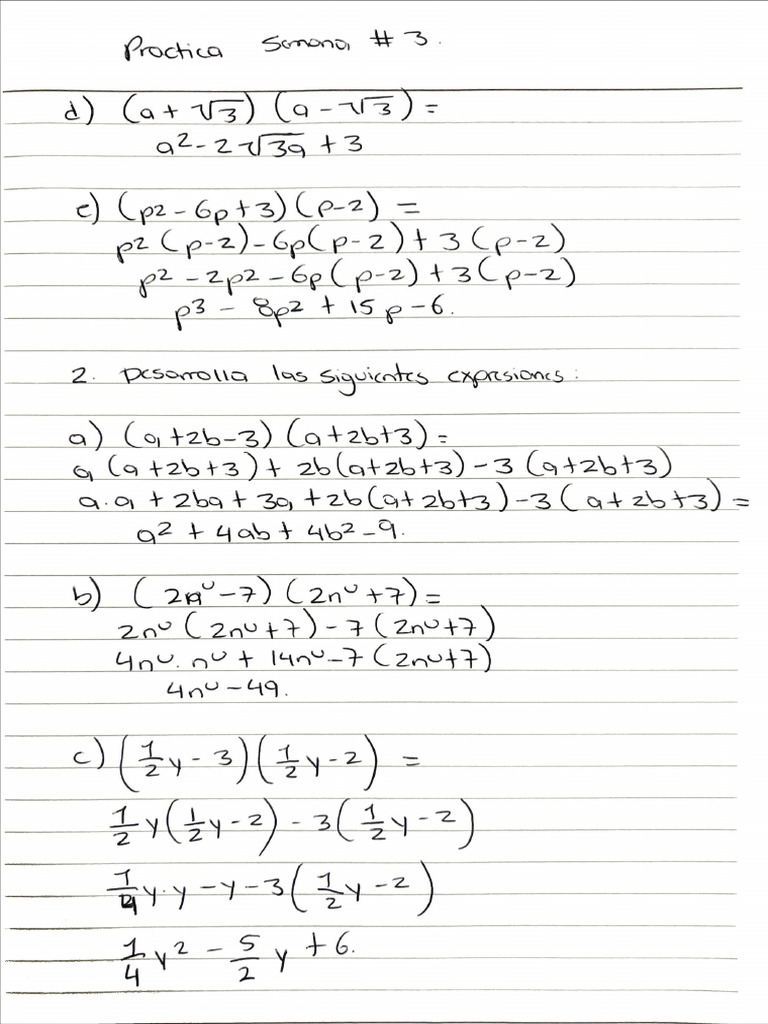 Practica Semana # 3.
d) (a + √3) (a - √3) =
a² - 2√3a + 3
e) (p² - 6p + 3) (p - 2) =
p² (p - 2) - 6p (p - 2) + 3 (p - 2)
p² - 2p² - 6p (p - 2) + 3 (p - 2)
p³ - 8p² + 15p - 6.
2. Desarrolla las siguientes expresiones:
a) (a + 2b - 3) (a + 2b + 3) =
a (a + 2b + 3) + 2b (a + 2b + 3) - 3 (a + 2b + 3)
a . a + 2ba + 3a + 2b (a + 2b + 3) - 3 (a + 2b + 3) =
a² + 4ab + 4b² - 9.
b) (2nᵁ - 7) (2nᵁ + 7) =
2nᵁ (2nᵁ + 7) - 7 (2nᵁ + 7)
4nᵁ . nᵁ + 14nᵁ - 7 (2nᵁ + 7)
4nᵁ - 49.
c) (1/2 y - 3) (1/2 y - 2) =
1/2 y (1/2 y - 2) - 3 (1/2 y - 2)
1/4 y . y - y - 3 (1/2 y - 2)
1/4 y² - 5/2 y + 6.